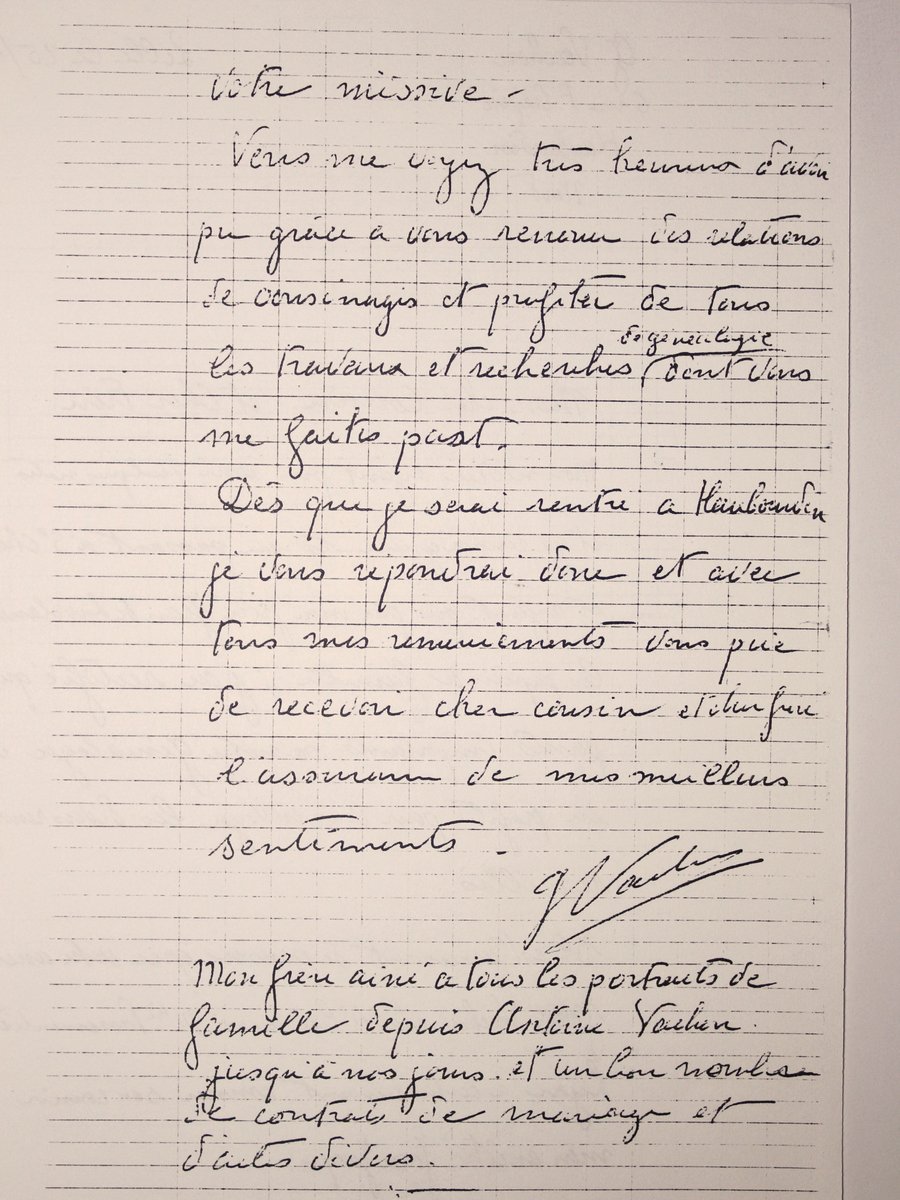 votre missive -
Vous me voyez très heureux d'avoir
pu grâce a vous renouer des relations
de cousinages et profiter de tous
de généalogie
les travaux et recherches, dont vous
me faites part.
Dès que je serai rentré a Haubourdin
je vous repondrai donc et avec
tous mes remerciements vous prie
de recevoir cher cousin et cher frère
l'assurance de mes meilleurs
sentiments.
Mon frère ainé a tous les portraits de
famille depuis Antoine Vachon
jusqu'à nos jours. et un bon nombre
de contrats de mariage et
d'actes divers.